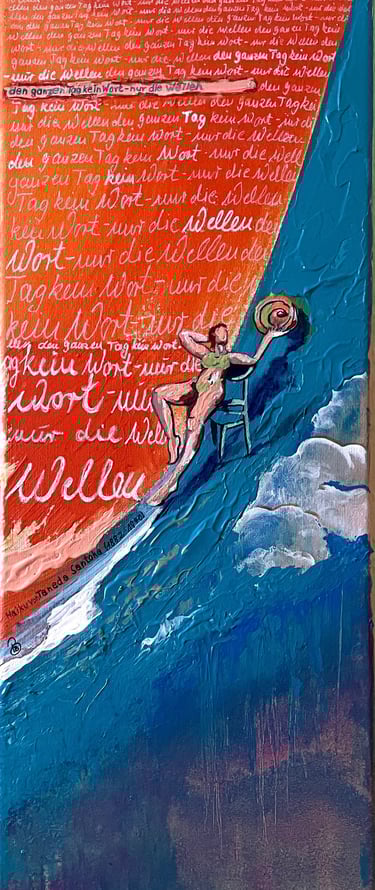 Wort-nur die Wellen den ganzen Tag kein Wort-nur die Wellen den
ganzen Tag kein Wort-nur die Wellen den ganzen Tag kein Wort
-nur die Wellen den ganzen Tag kein Wort-nur die Wellen
den ganzen Tag kein Wort-nur die Wellen den ganzen
Tag kein Wort-nur die Wellen den ganzen Tag kein
nur die Wellen den ganzen Tag kein Wort-nur die
den ganzen Tag kein Wort-nur die Well
ganzen Tag kein Wort-nur die Wellen
Tag kein Wort-nur die Wellen
Tag kein Wort-nur die Wellen de
Wort-nur die Wellen den
Tag kein Wort-nur die
kein Wort-nur die
den ganzen Tag kein Wort
ag kein Wort-nur die
Wort-nur
nur die Well
Wellen
Haiku von Taneda Santoka